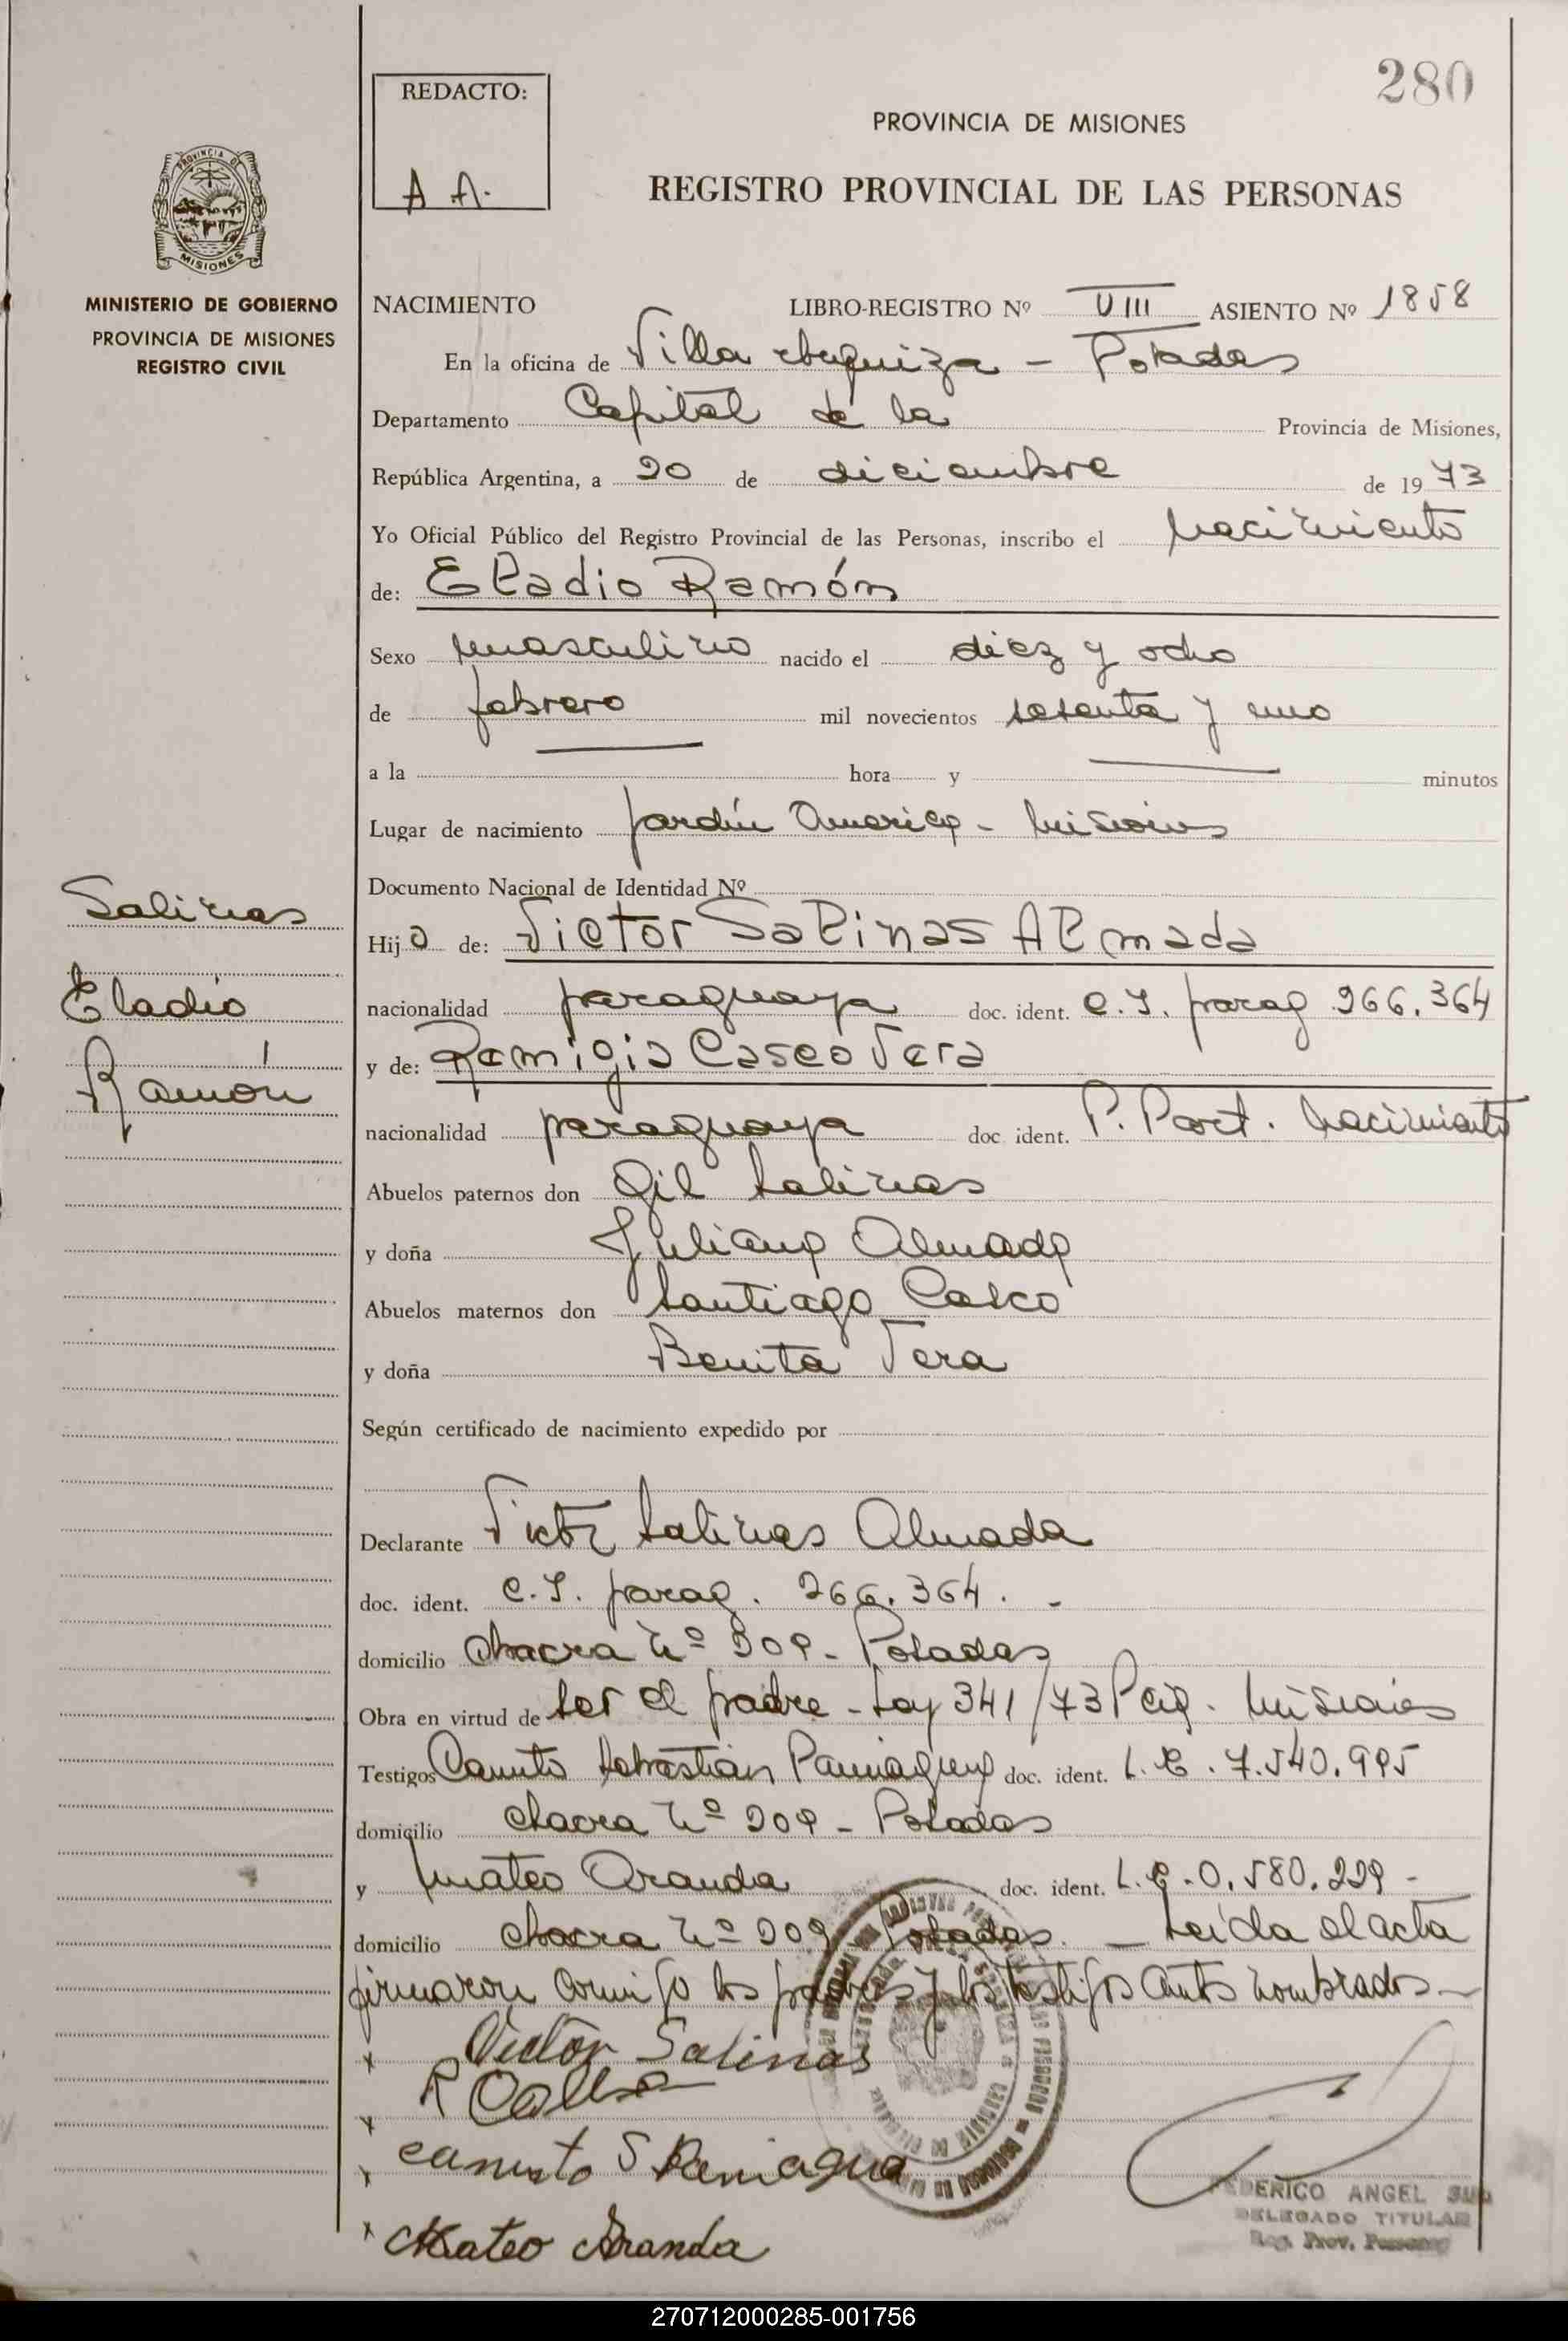 280
REDACTO:
A A.
PROVINCIA DE MISIONES
REGISTRO PROVINCIAL DE LAS PERSONAS
PROVINCIA DE
MISIONES
MINISTERIO DE GOBIERNO
PROVINCIA DE MISIONES
REGISTRO CIVIL
NACIMIENTO LIBRO-REGISTRO Nº VIII ASIENTO Nº 1858
En la oficina de Villa Urquiza - Posadas
Departamento Capital de la Provincia de Misiones,
República Argentina, a 20 de diciembre de 1973
Yo Oficial Público del Registro Provincial de las Personas, inscribo el nacimiento
de: Eladio Ramón
Sexo masculino nacido el diez y ocho
de febrero mil novecientos sesenta y uno
a la hora y minutos
Lugar de nacimiento Jardín America - Misiones
Documento Nacional de Identidad Nº
Salinas
Eladio
Ramón
Hijo de: Victor Salinas Almada
nacionalidad paraguaya doc. ident. C.I. parag 266.364
y de: Remigia Casco Vera
nacionalidad paraguaya doc. ident. P. Part. Nacimiento
Abuelos paternos don Gil Salinas
y doña Juliana Almada
Abuelos maternos don Santiago Casco
y doña Benita Vera
Según certificado de nacimiento expedido por
Declarante Victor Salinas Almada
doc. ident. C.I. parag. 266.364. -
domicilio Chacra Nº 209 - Posadas
Obra en virtud de ser el padre - Ley 341/73 Pcia. Misiones
Testigos Canuto Sebastián Paniagua doc. ident. L.E. 7.540.995
domicilio chacra Nº 209 - Posadas
y Mateo Aranda doc. ident. L.E. 0.580.229 -
domicilio chacra Nº 209 Posadas. _ Leída el acta
firmaron conmigo los padres y los testigos antes nombrados -
x Victor Salinas
x R
x canuto S Paniagua
x Mateo Aranda
FEDERICO ANGEL
DELEGADO TITULAR
Reg. Prov. Personas
270712000285-001756